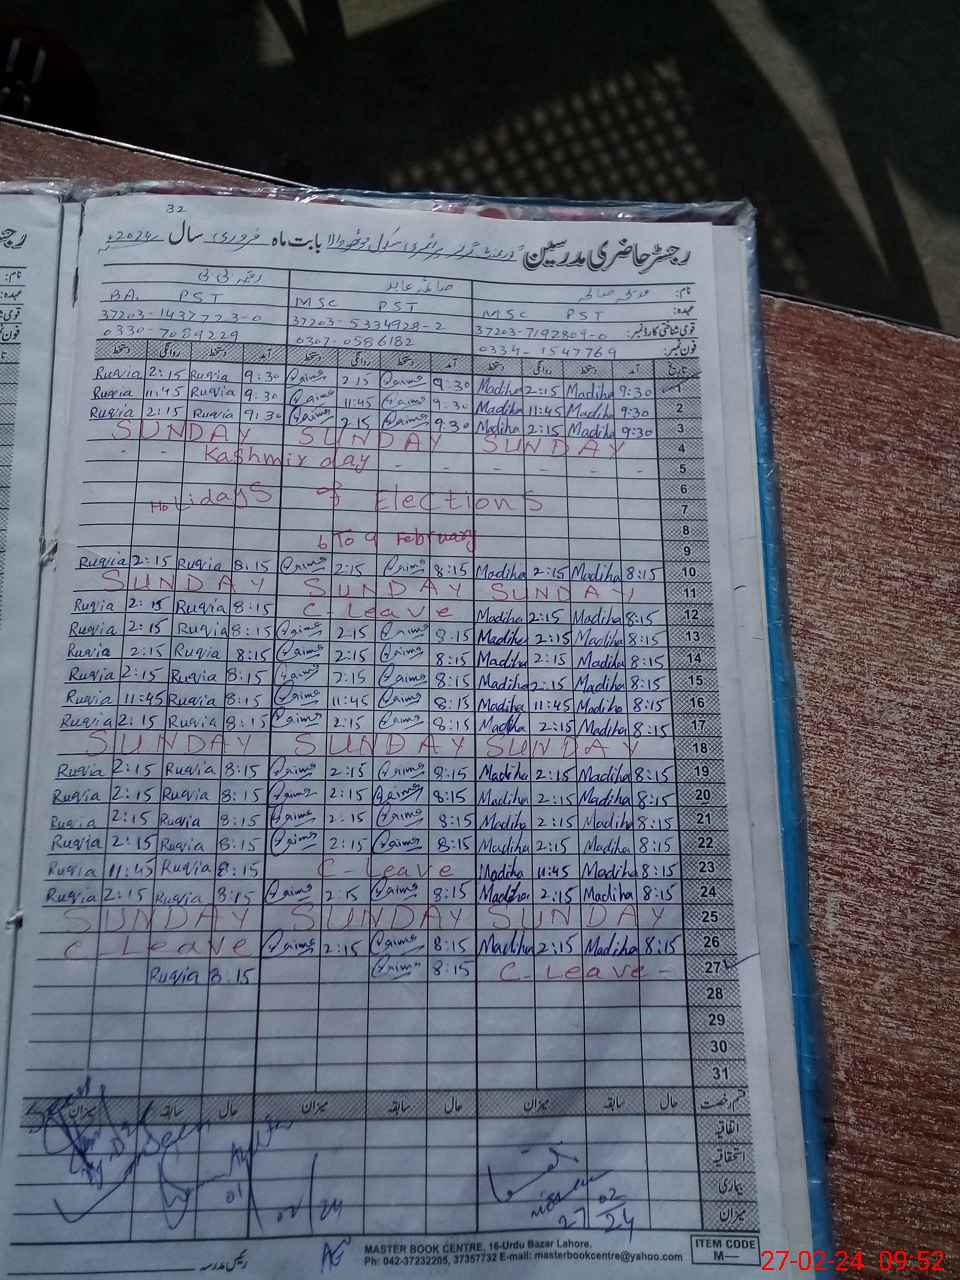 32
رجسٹر حاضری مدرسین گورنمنٹ گرلز پرائمری سکول بابت ماہ فروری سال 2024ء
نام:
عہدہ: PST MSC PST MSC PST BA.
قومی شناختی کارڈ نمبر: 37203-7192809-0 37203-5334928-2 37203-1437723-0
فون نمبر: 0334-1547769 0307-0586182 0330-7089229
تاریخ آمد دستخط روانگی دستخط آمد دستخط روانگی دستخط آمد دستخط روانگی دستخط
Ruqvia 2:15 Ruqvia 9:30 Qaima 2:15 Qaima 9:30 Madiha 2:15 Madiha 9:30 1
Ruqvia 11:45 Ruqvia 9:30 Qaima 11:45 Qaima 9:30 Madiha 11:45 Madiha 9:30 2
Ruqvia 2:15 Ruqvia 9:30 Qaima 2:15 Qaima 9:30 Madiha 2:15 Madiha 9:30 3
SUNDAY SUNDAY SUNDAY 4
- - Kashmir day - - - - - 5
6
Holidays of Elections 7
8
6 To 9 february 9
Ruqvia 2:15 Ruqvia 8:15 Qaima 2:15 Qaima 8:15 Madiha 2:15 Madiha 8:15 10
SUNDAY SUNDAY SUNDAY 11
Ruqvia 2:15 Ruqvia 8:15 C-Leave Madiha 2:15 Madiha 8:15 12
Ruqvia 2:15 Ruqvia 8:15 Qaima 2:15 Qaima 8:15 Madiha 2:15 Madiha 8:15 13
Ruqvia 2:15 Ruqvia 8:15 Qaima 2:15 Qaima 8:15 Madiha 2:15 Madiha 8:15 14
Ruqvia 2:15 Ruqvia 8:15 Qaima 2:15 Qaima 8:15 Madiha 2:15 Madiha 8:15 15
Ruqvia 11:45 Ruqvia 8:15 Qaima 11:45 Qaima 8:15 Madiha 11:45 Madiha 8:15 16
Ruqvia 2:15 Ruqvia 8:15 Qaima 2:15 Qaima 8:15 Madiha 2:15 Madiha 8:15 17
SUNDAY SUNDAY SUNDAY 18
Ruqvia 2:15 Ruqvia 8:15 Qaima 2:15 Qaima 8:15 Madiha 2:15 Madiha 8:15 19
Ruqvia 2:15 Ruqvia 8:15 Qaima 2:15 Qaima 8:15 Madiha 2:15 Madiha 8:15 20
Ruqvia 2:15 Ruqvia 8:15 Qaima 2:15 Qaima 8:15 Madiha 2:15 Madiha 8:15 21
Ruqvia 2:15 Ruqvia 8:15 Qaima 2:15 Qaima 8:15 Madiha 2:15 Madiha 8:15 22
Ruqvia 11:45 Ruqvia 8:15 C-Leave Madiha 11:45 Madiha 8:15 23
Ruqvia 2:15 Ruqvia 8:15 Qaima 2:15 Qaima 8:15 Madiha 2:15 Madiha 8:15 24
SUNDAY SUNDAY SUNDAY 25
C-Leave Qaima 2:15 Qaima 8:15 Madiha 2:15 Madiha 8:15 26
Ruqvia 8:15 Qaima 8:15 C-Leave- 27
28
29
30
31
قسم رخصت حال سابقہ میزان حال سابقہ میزان حال سابقہ میزان
اتفاقیہ
استحقاقیہ
بیماری
میزان
27 02/24
رئیس مدرسہ
MASTER BOOK CENTRE, 16-Urdu Bazar Lahore.
Ph: 042-37232205, 37357732 E-mail: masterbookcentre@yahoo.com
ITEM CODE
M—
27-02-24 09:52